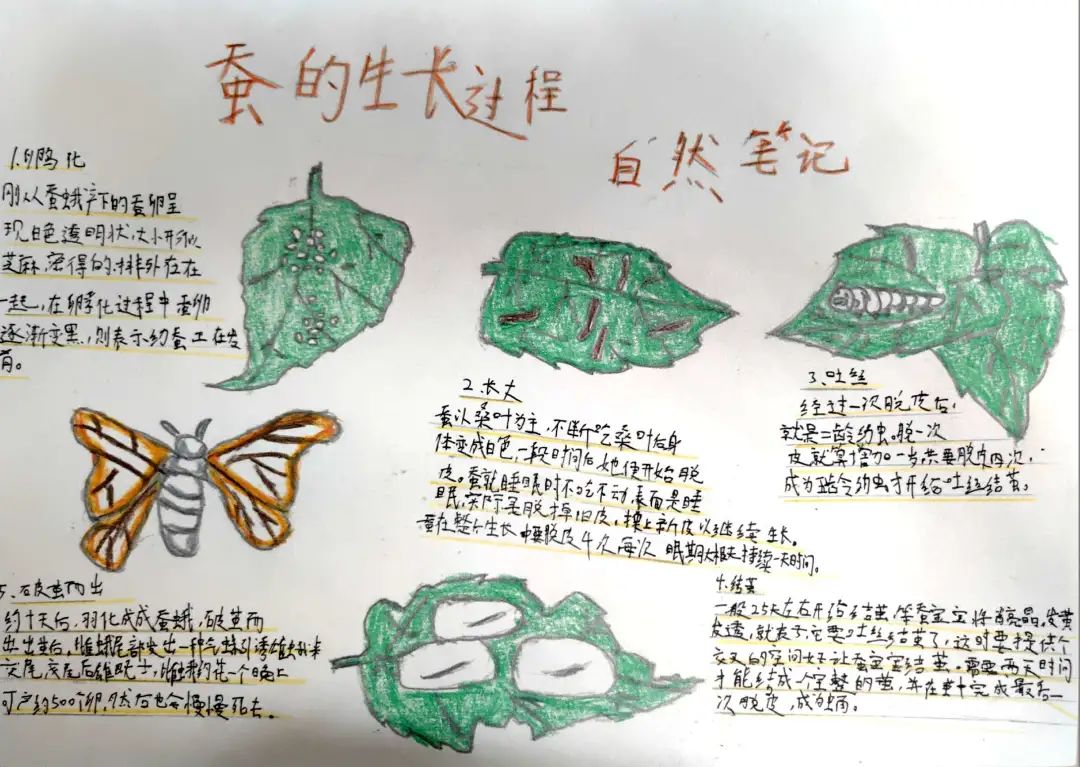 蚕的生长过程
自然笔记
1.卵孵化
刚从蚕蛾产下的蚕卵呈
现白色透明状,大小形似
芝麻,密得的排外在在
一起,在孵化过程中蚕卵
逐渐变黑,则表示幼蚕工在发
育。
2.长大
蚕以桑叶为主,不断吃桑叶后身
体变成白色,一段时间后她便开始脱
皮。蚕就睡眠时不吃不动,表面是睡
眠,实际是脱掉旧皮,换上新皮以继续生长。
蚕在整个生长中要脱皮4次每次 眠期大概持续一天时间。
3、吐丝
经过一次脱皮后,
就是二龄幼虫。脱一次
皮就算增加一岁,共要脱皮四次,
成为五龄幼虫才开始吐丝结茧。
4.结茧
一般25天左右开始结茧,等蚕宝宝将亮晶,发黄
发透,就表示它要吐丝结茧了,这时要提供个
交叉的空间好让蚕宝宝结茧。需要两天时间
才能结成一个完整的茧,并在茧中完成最后一
次脱皮,成为蛹。
5、破茧而出
约十天后,羽化成成蚕蛾,破茧而
出出茧后,雌蛾尾部发出一种气味引诱雄蛾来
交尾,交尾后雄蛾死亡,雌蛾约花一个晚上
可产约500个卵,然后也会慢慢死去。